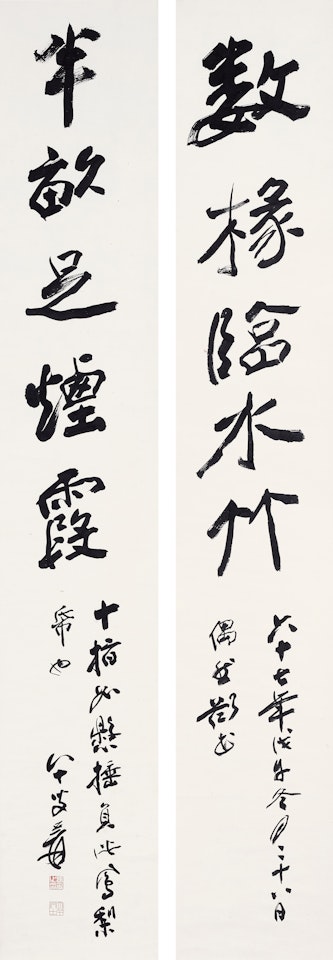 數椽臨水竹
六十七年戊午冬月二十八日
偶然欲書
半畝足煙霞
十指如懸捶負此鳳梨
帋也
八十叟爰